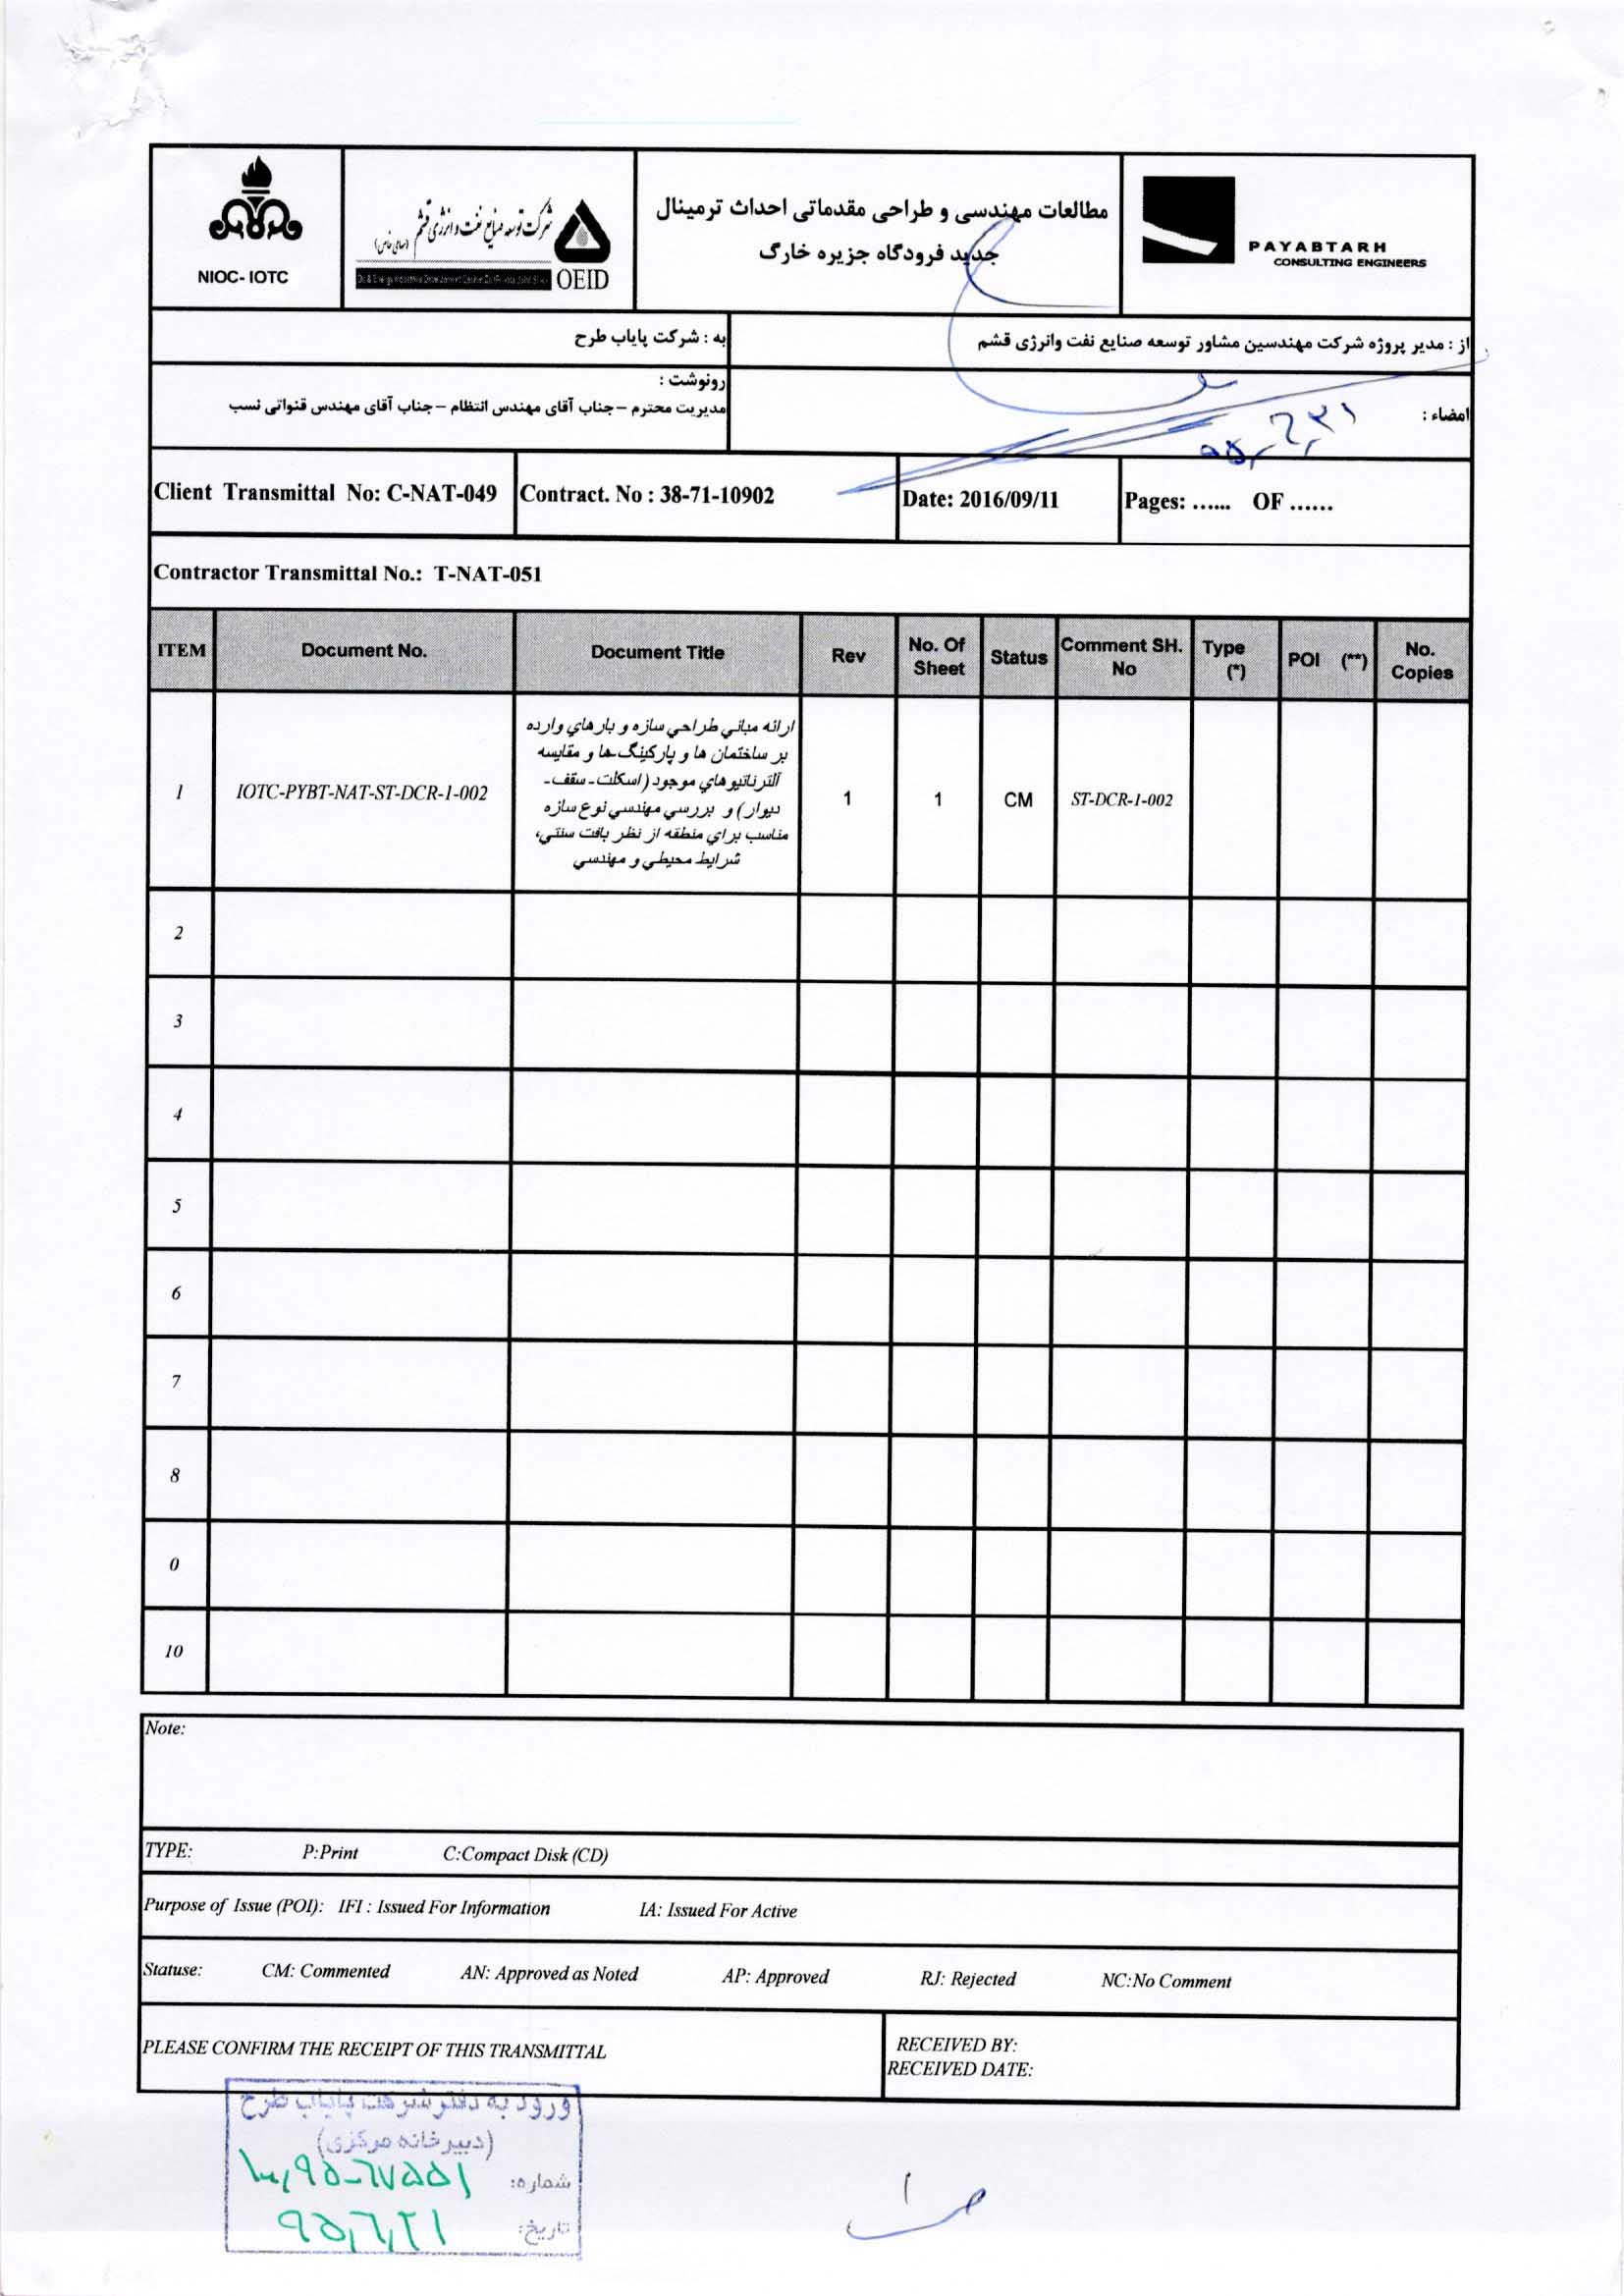 NIOC- IOTC
شرکت توسعه صنایع نفت و انرژی قشم
(سهامی خاص)
OEID
مطالعات مهندسی و طراحی مقدماتی احداث ترمینال
جدید فرودگاه جزیره خارگ
PAYABTARH
CONSULTING ENGINEERS
از : مدیر پروژه شرکت مهندسین مشاور توسعه صنایع نفت وانرژی قشم
به : شرکت پایاب طرح
رونوشت :
مدیریت محترم – جناب آقای مهندس انتظام – جناب آقای مهندس قنواتی نسب
امضاء :
Client Transmittal No: C-NAT-049
Contract. No : 38-71-10902
Date: 2016/09/11
Pages: ...... OF ......
Contractor Transmittal No.: T-NAT-051
ITEM Document No. Document Title Rev No. Of Sheet Status Comment SH. No Type (*) POI (**) No. Copies
1 IOTC-PYBT-NAT-ST-DCR-1-002
ارائه مباني طراحي سازه و بارهاي وارده
بر ساختمان ها و پاركينگ‌ها و مقايسه
آلترناتيوهاي موجود (اسكلت - سقف -
ديوار) و بررسي مهندسي نوع سازه
مناسب براي منطقه از نظر بافت سنتي،
شرايط محيطي و مهندسي
1 1 CM ST-DCR-1-002
2
3
4
5
6
7
8
0
10
Note:
TYPE: P:Print C:Compact Disk (CD)
Purpose of Issue (POI): IFI : Issued For Information IA: Issued For Active
Statuse: CM: Commented AN: Approved as Noted AP: Approved RJ: Rejected NC:No Comment
PLEASE CONFIRM THE RECEIPT OF THIS TRANSMITTAL
RECEIVED BY:
RECEIVED DATE:
ورود به دفتر شرکت پایاب طرح
(دبیرخانه مرکزی)
شماره:
تاریخ: ۹۵/۶/۲۱